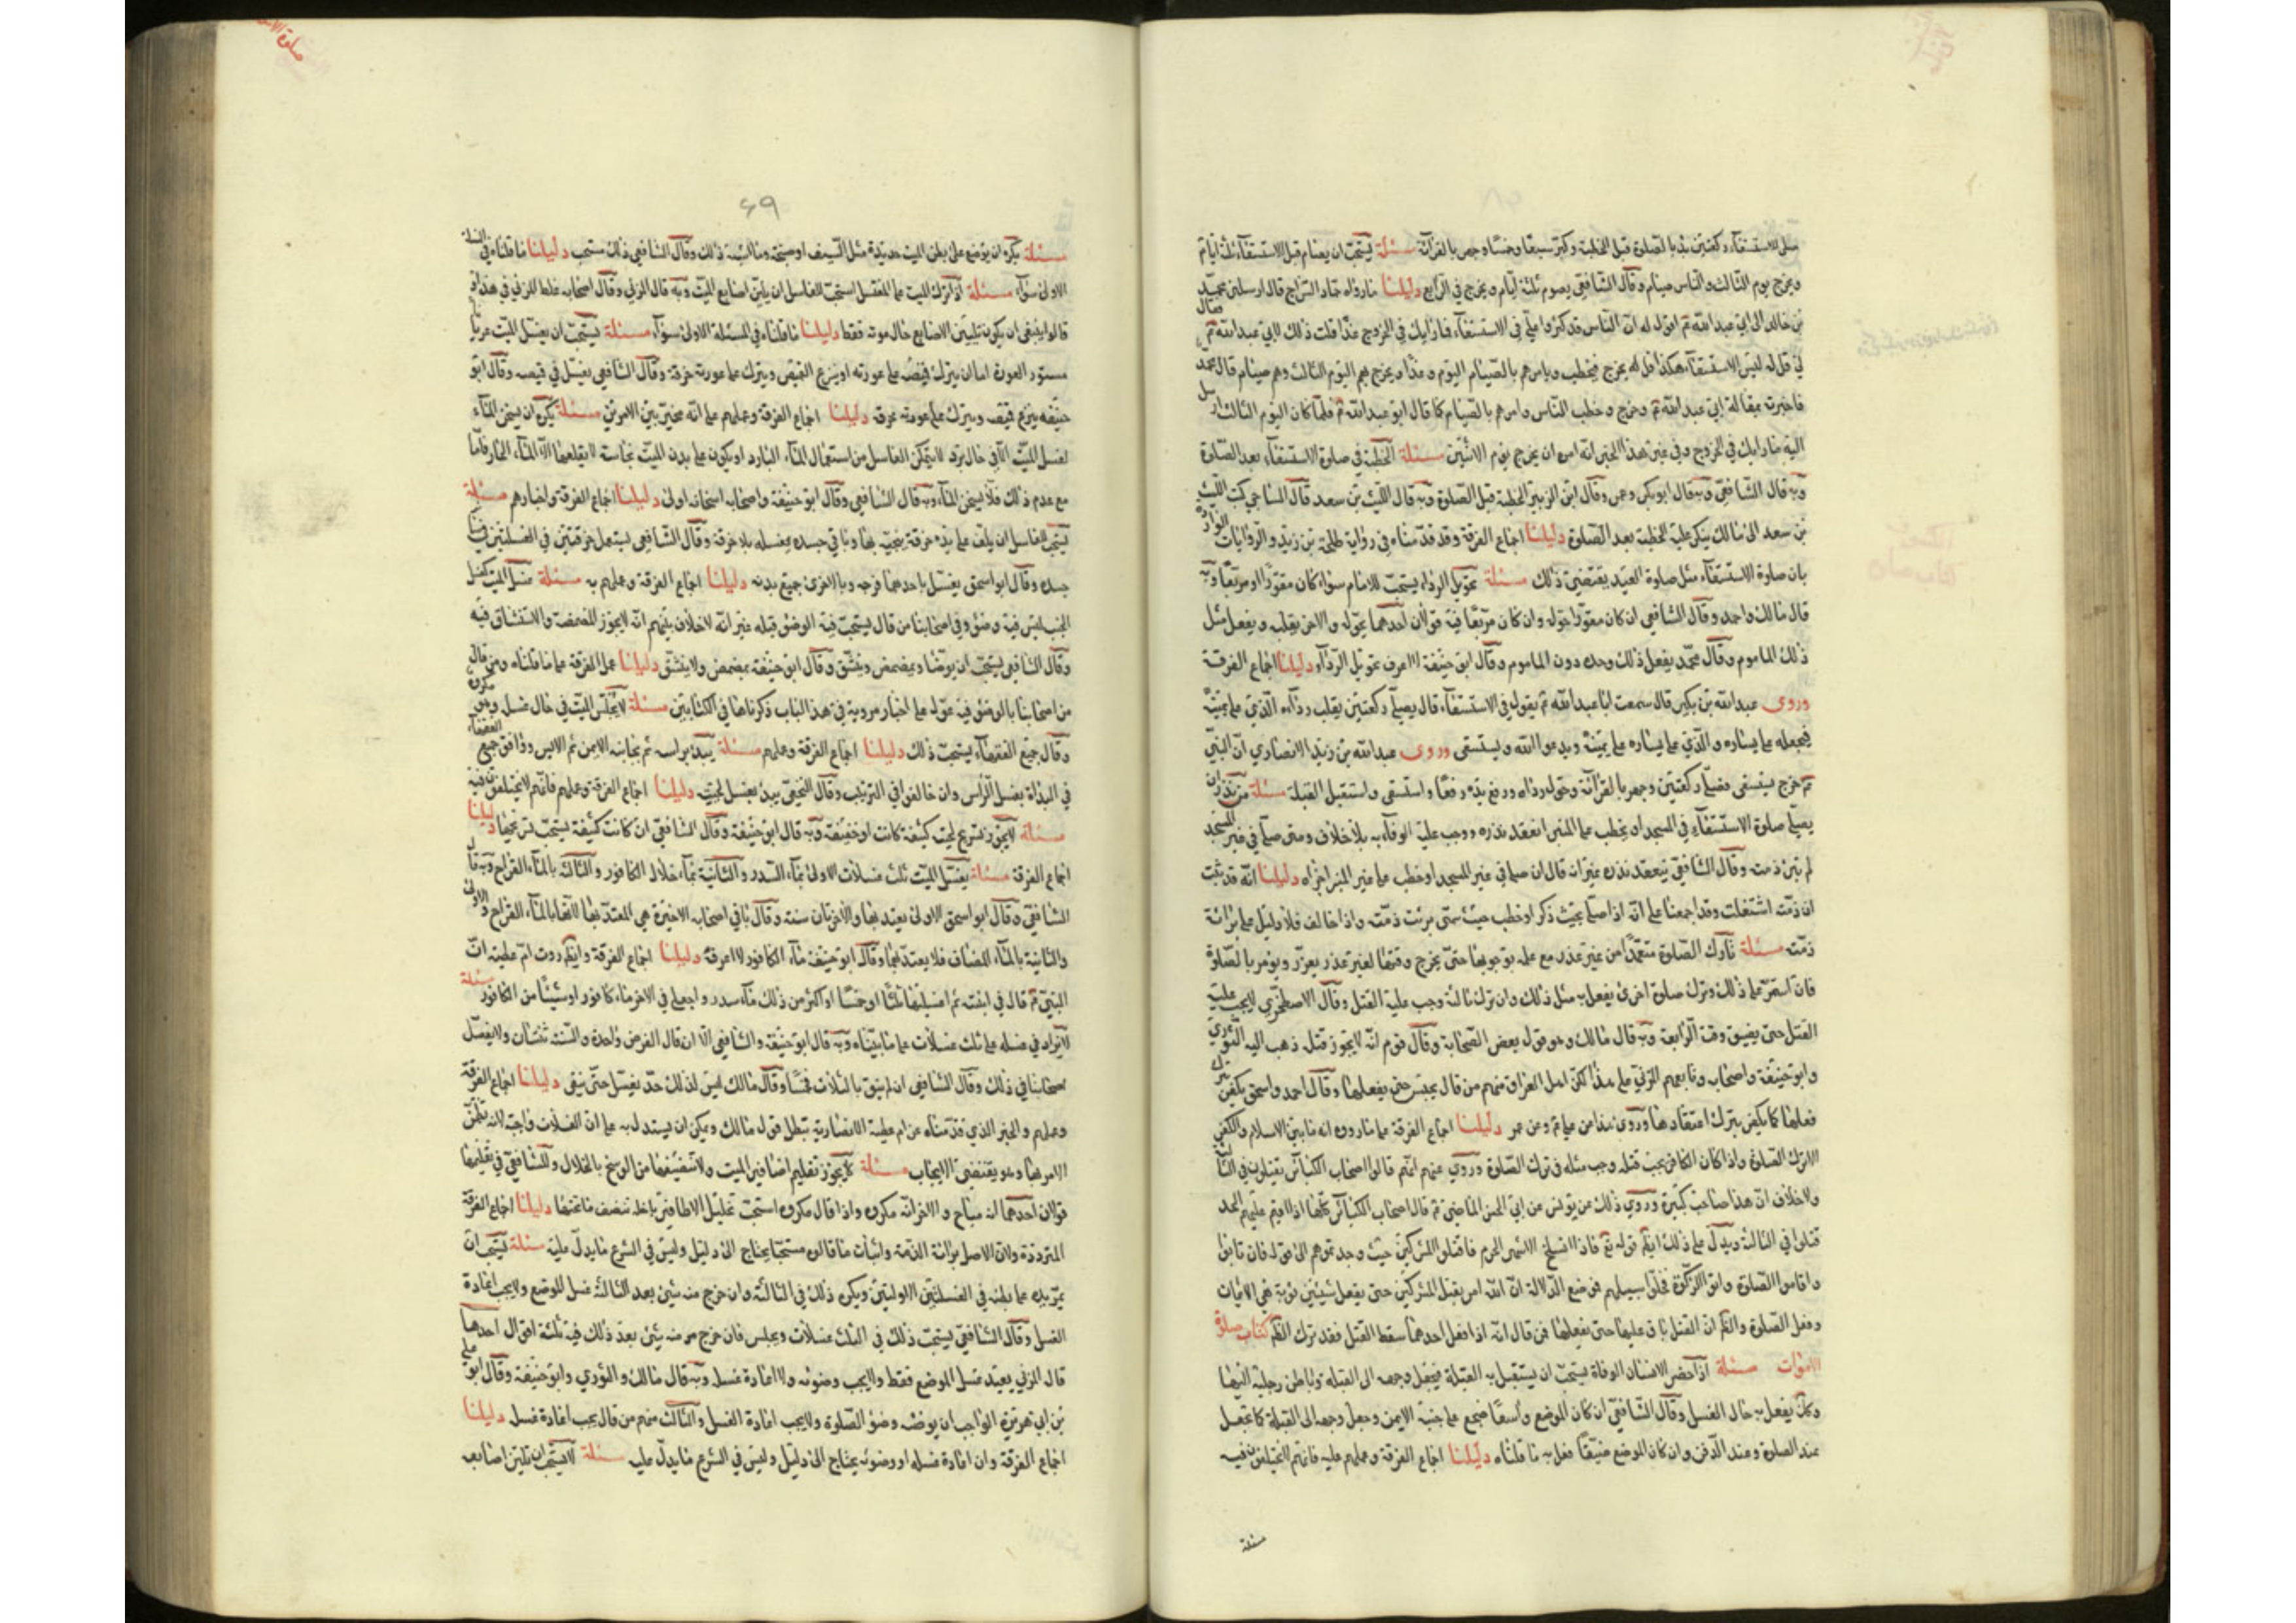 صلى الاستسقاء ركعتين بدأ بالصلوة قبل الخطبة وكبر سبعًا وخمسًا وجهر بالقرائة مسئلة يستحب ان يصام قبل الاستسقاء ثلثة ايام
ويخرج يوم الثالث والناس صيام وقال الشافعي يصوم ثلثة ايام ويخرج في الرابع دليلنا ما رواه حماد السراج قال ارسلني محمد
بن خالد الى ابي عبد الله ع اقول له ان الناس قد اكثروا علي في الاستسقاء فما رايك في الخروج غدًا فقلت ذلك لابي عبد الله ع فقال
لي قل له ليس الاستسقاء هكذا قل له يخرج فيخطب ويامرهم بالصيام اليوم وغدًا ويخرج بهم اليوم الثالث وهم صيام قال محمد
فاخبرته بمقالة ابي عبد الله ع وخرج وخطب الناس وامرهم بالصيام كما قال ابو عبد الله ع فلما كان اليوم الثالث ارسل
اليه ما رايك في الخروج وفي غير هذا الخبر انه امره ان يخرج يوم الاثنين مسئلة الخطبة في صلوة الاستسقاء بعد الصلوة
وبه قال الشافعي وبه قال ابو بكر وعمر وقال ابن الزبير الخطبة قبل الصلوة وبه قال الليث بن سعد قال الساجي كتب الليث
بن سعد الى مالك ينكر عليه الخطبة بعد الصلوة دليلنا اجماع الفرقة وقد قدمناه في رواية طلحة بن زيد والروايات الواردة
بان صلوة الاستسقاء مثل صلوة العيد يقتضي ذلك مسئلة تحويل الرداء يستحب للامام سواء كان مقورًا او مربعًا وبه
قال مالك واحمد وقال الشافعي ان كان مقورًا حوله وان كان مربعًا فيه قولان احدهما يحوله والاخر يقلبه ويفعل مثل
ذلك الماموم وقال محمد يفعل ذلك وحده دون الماموم وقال ابو حنيفة لا اعرف تحويل الرداء دليلنا اجماع الفرقة
وروى عبد الله بن بكير قال سمعت ابا عبد الله ع يقول في الاستسقاء قال يصلي ركعتين يقلب رداءه الذي على يمينه
فيجعله على يساره والذي على يساره على يمينه ويدعوا الله ويستسقى وروى عبد الله بن زيد الانصاري ان النبي
ص خرج يستسقى فصلى ركعتين وجهر بالقرائة وحول رداه ورفع يديه ودعا واستسقى واستقبل القبلة مسئلة من نذر ان
يصلي صلوة الاستسقاء في المسجد او يخطب على المنبر انعقد نذره ووجب عليه الوفاء به بلا خلاف ومتى صلى في غير المسجد
لم تبرئ ذمته وقال الشافعي ينعقد نذره غير انه قال ان صلى في غير المسجد او خطب على غير المنبر اجزاه دليلنا انه قد ثبت
ان ذمته اشتغلت وقد اجمعنا على انه اذا صلى بحيث ذكر او خطب حيث سمى برئت ذمته واذا خالف فلا دليل على برائة
ذمته مسئلة تارك الصلوة متعمدًا من غير عذر مع علمه بوجوبها حتى يخرج وقتها لغير عذر يعزر ويؤمر بالصلوة
فان استمر على ذلك وترك صلوة اخرى يفعل به مثل ذلك وان ترك ثالثة وجب عليه القتل وقال الاصطخري لا يجب عليه
القتل حتى يضيق وقت الرابعة وبه قال مالك وهو قول بعض الصحابة وقال قوم انه لا يجوز قتله ذهب اليه الثوري
وابو حنيفة واصحابه وتابعهم المزني على هذا لكن اهل العراق منهم من قال يحبس حتى يفعلها وقال احمد واسحق يكفر بترك
فعلها كما يكفر بترك اعتقادها وروى هذا عن علي ع وعن عمر دليلنا اجماع الفرقة على ما رووه انه ما بين الاسلام والكفر
الا ترك الصلوة واذا كان الكافر يجب قتله وجب مثله في ترك الصلوة وروي عنهم انهم قالوا اصحاب الكبائر يقتلون في الثالثة
ولا خلاف ان هذا صاحب كبيرة وروي ذلك عن يونس عن ابي الحسن الماضي ع قال اصحاب الكبائر كلها اذا اقيم عليهم الحد
قتلوا في الثالثة ويدل على ذلك ايضًا قوله تع فاذا انسلخ الاشهر الحرم فاقتلوا المشركين حيث وجدتموهم الى قوله فان تابوا
واقاموا الصلوة واتوا الزكوة فخلوا سبيلهم فوضع الدلالة ان الله امر بقتل المشركين حتى يفعل شيئين توبة هي الايمان
وفعل الصلوة والحكم ان القتل باق عليهما حتى يفعلهما فمن قال انه اذا فعل احدهما سقط القتل فقد ترك الحكم كتاب صلوة
الاموات مسئلة اذا حضر الانسان الوفاة يستحب ان يستقبل به القبلة فيجعل وجهه الى القبلة وباطن رجليه اليها
وكذلك يفعل به حال الغسل وقال الشافعي ان كان الموضع واسعًا ضجع على جنبه الايمن وجعل وجهه الى القبلة كما يفعل
عند الصلوة وعند الدفن وان كان الموضع ضيقًا فعل به ما قلناه دليلنا اجماع الفرقة وعملهم عليه فانهم لا يختلفون فيه
مسئلة
صلوة الا
۶۹
مسئلة يكره ان يوضع على بطن الميت حديدة مثل السيف او صبخة وما اشبه ذلك وقال الشافعي ذلك مستحب دليلنا ما قلناه في المسئلة
الاولى سواء مسئلة اذا ترك الميت على المغتسل استحب للغاسل ان يلين اصابع الميت وبه قال المزني وقال اصحابه غلط المزني في هذا
قالوا ينبغي ان يكون تليين الاصابع حال موته فقط دليلنا ما قلناه في المسئلة الاولى سواء مسئلة يستحب ان يغسل الميت عريانا
مستور العورة اما ان يترك قميصه على عورته او ينزع القميص ويترك على عورته خرقة وقال الشافعي يغسل في قميصه وقال ابو
حنيفة ينزع قميصه ويترك على عورته خرقه دليلنا اجماع الفرقة وعملهم على انه مخير بين الامرين مسئلة يكره ان يسخن الماء
لغسل الميت الا في حال برد لا يتمكن الغاسل من استعمال الماء البارد او يكون على بدن الميت نجاسة لا يقلعها الا الماء الحار فاما
مع عدم ذلك فلا يسخن الماء وبه قال الشافعي وقال ابو حنيفة واصحابه اسخانه اولى دليلنا اجماع الفرقة واخبارهم مسئلة
يستحب للغاسل ان يلف على يده خرقة ينجيه بها وباقي جسده يغسله بلا خرقة وقال الشافعي يستعمل خرقتين في الغسلتين في
جسده وقال ابو اسحق يغسل باحدهما فرجه وبالاخرى جميع بدنه دليلنا اجماع الفرقة وعملهم به مسئلة غسل الميت كغسل
الجنب ليس فيه وضوء وفي اصحابنا من قال يستحب فيه الوضوء قبله غير انه لا خلاف بينهم انه لا يجوز المضمضة والاستنشاق فيه
وقال الشافعي يستحب ان يوضا ويمضمض وينشق وقال ابو حنيفة يمضمض ولا ينشق دليلنا عمل الفرقة على ما قلناه ومن قال
من اصحابنا بالوضوء فيه عول على اخبار مروية في هذا الباب ذكرناها في الكتابين مسئلة لا يجلس الميت في حال غسله وهو مكروه
وقال جميع الفقهاء يستحب ذلك دليلنا اجماع الفرقة وعملهم مسئلة يبدء براسه ثم بجانبه الايمن ثم الايسر ووافق جميع الفقهاء
في البداة بغسل الراس وان خالفوا في الترتيب وقال النخعي يبدء بغسل لحيته دليلنا اجماع الفرقة وعملهم فانهم لا يختلفون فيه
مسئلة لا يجوز تسريح لحيته كثيفة كانت او خفيفة وبه قال ابو حنيفة وقال الشافعي ان كانت كثيفة يستحب تسريحها دليلنا
اجماع الفرقة مسئلة يغسل الميت ثلث غسلات الاولى بماء السدر والثانية بماء جلال الكافور والثالثة بالماء القراح وبه قال
الشافعي وقال ابو اسحق الاولى يعتد بها والاخرتان سنة وقال باقي اصحابه الاخيرة هي المعتد بها لانها بالماء القراح والاولى
والثانية بالماء المضاف فلا يعتد بهما وقال ابو حنيفة ماء الكافور لا اعرفه دليلنا اجماع الفرقة وايضًا روت ام عطية ان
النبي ص قال في ابنته ثم اغسلنها ثلثًا او خمسًا او اكثر من ذلك بماء سدر واجعلن في الاخر ماء كافور او شيئًا من الكافور مسئلة
لا يزاد في غسله على ثلث غسلات على ما بيناه وبه قال ابو حنيفة والشافعي الا ان قال الفرض واحدة والسنة ثنتان ولا يفصل
اصحابنا في ذلك وقال الشافعي ان لم ينق بالثلاث فخمسًا وقال مالك ليس لذلك حد يغسل حتى ينقى دليلنا اجماع الفرقة
وعملهم والخبر الذي قدمناه عن ام عطية الانصارية يبطل قول مالك ويمكن ان يستدل به على ان الغسلات واجبة لانه تضمن
الامر بها وهو يقتضي الايجاب مسئلة لا يجوز تقليم اضافير الميت ولا تنظيفها من الوسخ بالخلال وللشافعي في تقليمها
قولان احدهما انه مباح والاخر انه مكروه واذا قال مكروه استحب تخليل الاظافير باخلة تنظف ما تحتها دليلنا اجماع الفرقة
المترددة ولان الاصل برائة الذمة واثبات ما قالوه مستحبًا يحتاج الى دليل وليس في الشرع ما يدل عليه مسئلة يستحب ان
يمر يده على بطنه في الغسلتين الاولتين ويكره ذلك في الثالثة وان خرج منه شئ بعد الثالثة غسل الموضع ولا يجب اعادة
الغسل وقال الشافعي يستحب ذلك في الثلث غسلات ويجلس فان خرج منه شئ بعد ذلك فيه ثلثة اقوال احدها
قال المزني يعيد غسل الموضع فقط ولا يجب وضوئه ولا اعادة غسله وبه قال مالك والثوري وابو حنيفة وقال ابو علي
بن ابي هريرة الواجب ان يوضئه وضوء الصلوة ولا يجب اعادة الغسل والثالث منهم من قال يجب اعادة غسله دليلنا
اجماع الفرقة وان اعادة غسله او وضوئه يحتاج الى دليل وليس في الشرع ما يدل عليه مسئلة لا يستحب ان تلين اصابعه